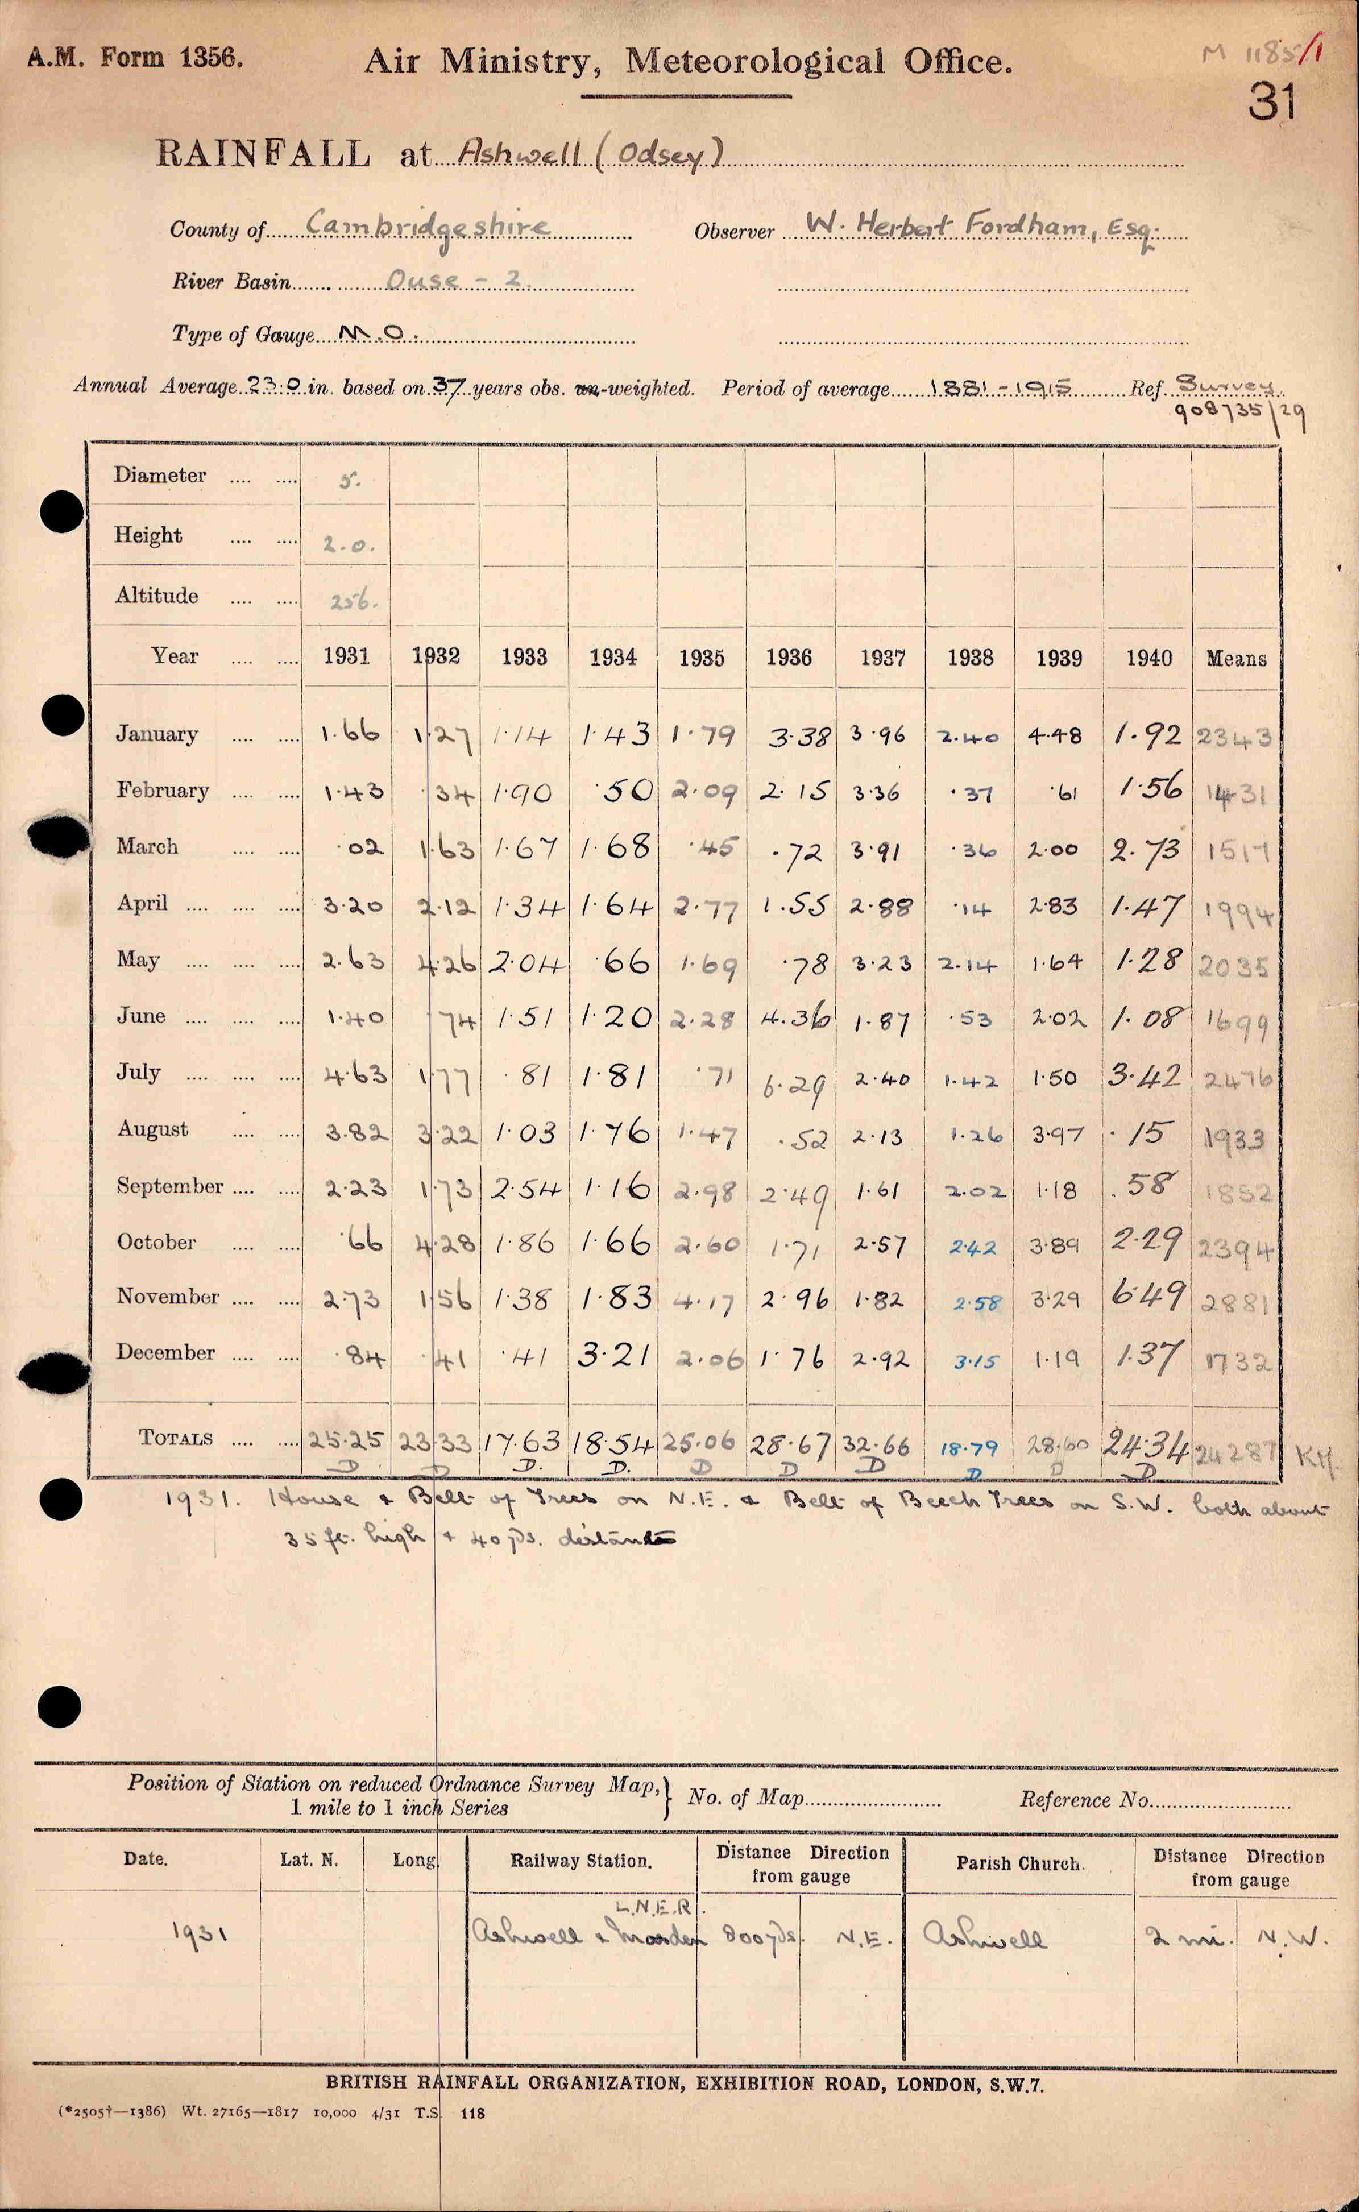 A.M. Form 1356. Air Ministry, Meteorological Office. M 1185/1
31
RAINFALL at Ashwell (Odsey)
County of Cambridgeshire Observer W. Herbert Fordham, Esq.
River Basin Ouse - 2.
Type of Gauge M.O.
Annual Average 23.0 in. based on 37 years obs. un-weighted. Period of average 1881-1915 Ref. Survey.
908735/29
Diameter .... .... 5.
Height .... .... 2.0.
Altitude .... .... 256.
Year .... .... 1931 1932 1933 1934 1935 1936 1937 1938 1939 1940 Means
January .... .... 1.66 1.27 1.14 1.43 1.79 3.38 3.96 2.40 4.48 1.92 2343
February .... .... 1.43 .34 1.90 .50 2.09 2.15 3.36 .37 .61 1.56 1431
March .... .... .02 1.63 1.67 1.68 .45 .72 3.91 .36 2.00 2.73 1517
April .... .... .... 3.20 2.12 1.34 1.64 2.77 1.55 2.88 .14 2.83 1.47 1994
May .... .... .... 2.63 4.26 2.04 .66 1.69 .78 3.23 2.14 1.64 1.28 2035
June .... .... .... 1.40 .74 1.51 1.20 2.28 4.36 1.87 .53 2.02 1.08 1699
July .... .... .... 4.63 1.77 .81 1.81 .71 6.29 2.40 1.42 1.50 3.42 2476
August .... .... 3.82 3.22 1.03 1.76 1.47 .52 2.13 1.26 3.97 .15 1933
September .... .... 2.23 1.73 2.54 1.16 2.98 2.49 1.61 2.02 1.18 .58 1852
October .... .... .66 4.28 1.86 1.66 2.60 1.71 2.57 2.42 3.89 2.29 2394
November .... .... 2.73 1.56 1.38 1.83 4.17 2.96 1.82 2.58 3.29 6.49 2881
December .... .... .84 .41 .41 3.21 2.06 1.76 2.92 3.15 1.19 1.37 1732
TOTALS .... .... 25.25 23.33 17.63 18.54 25.06 28.67 32.66 18.79 28.60 24.34 24287
D D D. D. D D D D D D
1931. House & Belt of Trees on N.E. & Belt of Beech Trees on S.W. both about
35 ft. high & 40 yds. distant
Position of Station on reduced Ordnance Survey Map,} No. of Map Reference No.
1 mile to 1 inch Series
Date. Lat. N. Long Railway Station. Distance from gauge Direction Parish Church. Distance from gauge Direction
L.N.E.R.
1931 Ashwell & Morden 800 yds. N.E. Ashwell 2 mi. N.W.
BRITISH RAINFALL ORGANIZATION, EXHIBITION ROAD, LONDON, S.W.7.
(*2505†—1386) Wt. 27165—1817 10,000 4/31 T.S. 118